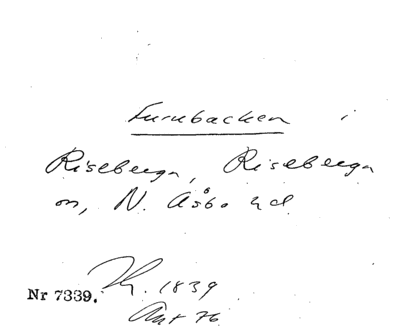 Furubacken i
Riseberga, Riseberga
sn, N. Åsbo hd
Nr 7339. Th. 1839
Ant 76